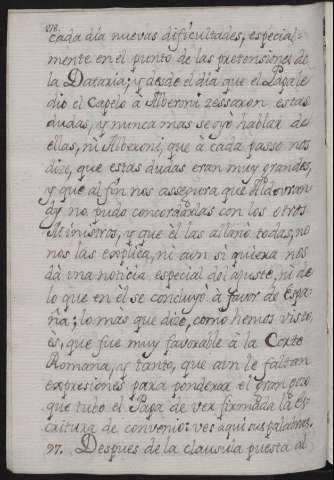 178.
cada dia nuevas dificultades, especial-
mente en el punto de las pretensiones de
la Dataria; y desde el dia que el Papa le
dio el Capelo à Alberoni zessaron estas
dudas, y nunca mas se oyò hablar de
ellas, ni Alberoni, que à cada passo nos
dize, que estas dudas eran muy grandes,
y que al fin nos assegura que Aldovran
dy no pudo concordarlas con los otros
Ministros, y que èl las allanò todas, no
nos las explica, ni aun si quiera nos
dà una noticia especial del ajuste, ni de
lo que en èl se concluyò à favor de Espa-
ña; lo mas que dize, como hemos visto,
es, que fue muy favorable à la Corte
Romana, y tanto, que aun le faltan
expresiones para ponderar el gran gozo
que tubo el Papa de ver firmada la es-
critura de convenio: ves aqui sus palabras.
97. Despues de la clausula puesta al